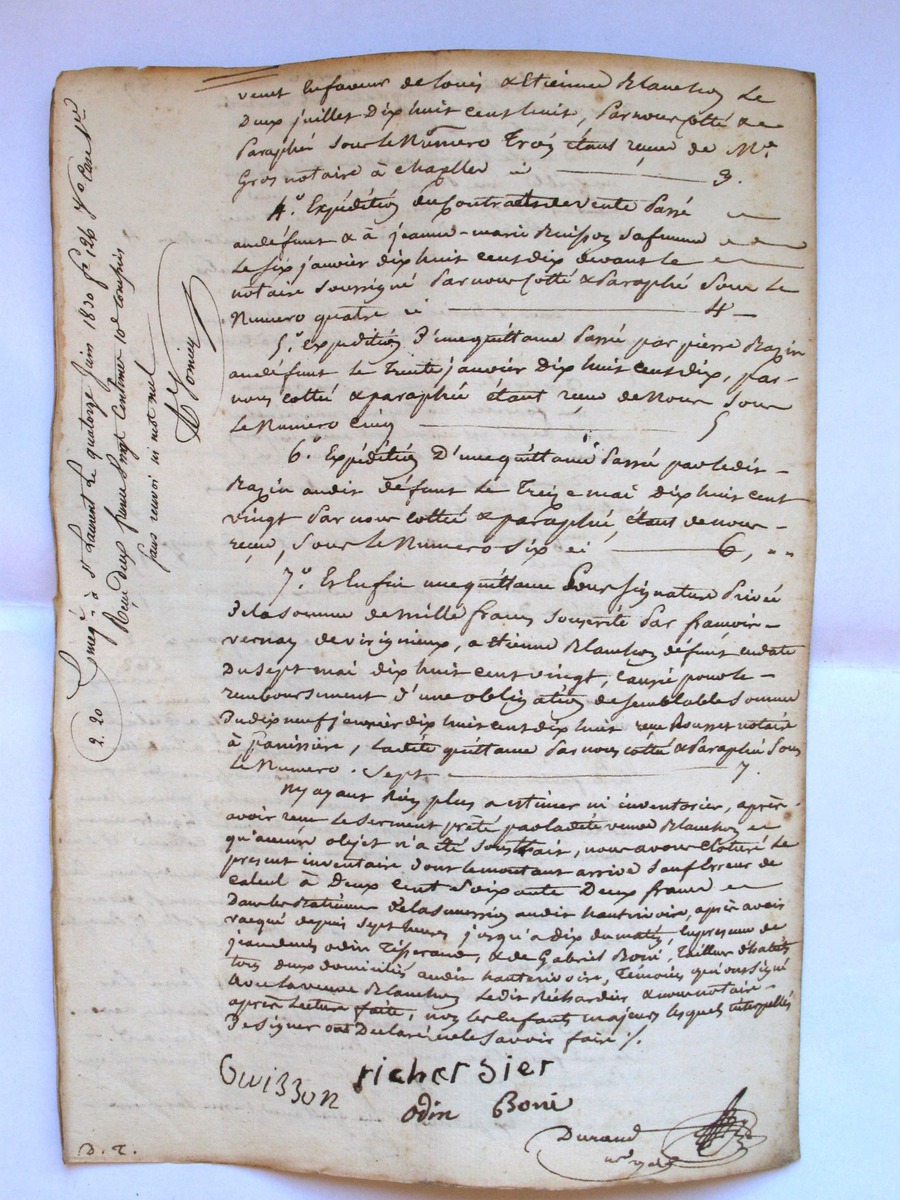 vente en faveur de Louis & Etienne Blanchon Le
Deux juillet Dix huit cent huit, Par nous Cotté & 
Paraphé Sous le Numero Trois étant reçue de Me
Gros notaire à chapller ci 3.
4.° Expédition du Contrat de vente Passé
au défunt & à jeanne-marie Buisson Safemme
Le Six janvier dix huit cent dix devant le
notaire Soussigné Par nous Cotté & Paraphé Sous Le
Numero quatre ci 4
5.° Expédition D'une quittance Passé par pierre Razin
au défunt Le Trente janvier dix huit cent dix, par
nous Cotté & paraphée étant reçue de Nous Sous
Le Numero Cinq 5
6.° Expédition D'une quittance Passé par ledit
Razin audit défunt Le Treize mai Dix huit cent
vingt Par nous Cotté & paraphée, étant de nous
reçue, Sous Le Numero Six ci 6, "
7.° Et Enfin une quittance Sous Signature Privée
De la Somme de mille francs Souscrite Par françois
vernay de virignieux, a Etienne Blanchon défunt en date
Du Sept mai dix huit cent vingt, Causée pour le
remboursement d'une obligation de Semblable Somme
Du dix neuf janvier dix huit cent dix huit reçue Rousset notaire
à panissière, Ladite quittance Par nous Cotté & Paraphé Sous
Le Numero . Sept 7.
Ny ayant Rien plus a Estimer ni inventorier, après
avoir reçu Le Serment prêté par ladite veuve Blanchon
qu'aucun objet n'a été Soustrait, nous avons Cloturé Le
present inventaire dont le montant arrive Sauf Erreur de
Calcul à Deux Cent Soixante Deux francs
Dans les Batimens de la Succession audit hauterivoire, après avoir
vacqué depuis Sept heures jusqu'a dix du matin En presence de
jean denis odin Tisserand, & de Gabriel Boni, Tailleur d'habits
tous deux domiciliés audit hauterivoire, Témoins qui ont Signé
avec la veuve Blanchon Ledit Richardier & nous notaire
après Lecture faite, non les Enfants majeurs lesquels interpellés
De Signer ont Déclaré ne le Savoir faire /.
Gwizzon richersier
odin Boni
Durand
D. T.
Enreg. à St Laurent le quatorze Juin 1830 fo 126
Reçu deux francs vingt Centimes 10e Compris
sans renvoi ni mot nul
2. 20